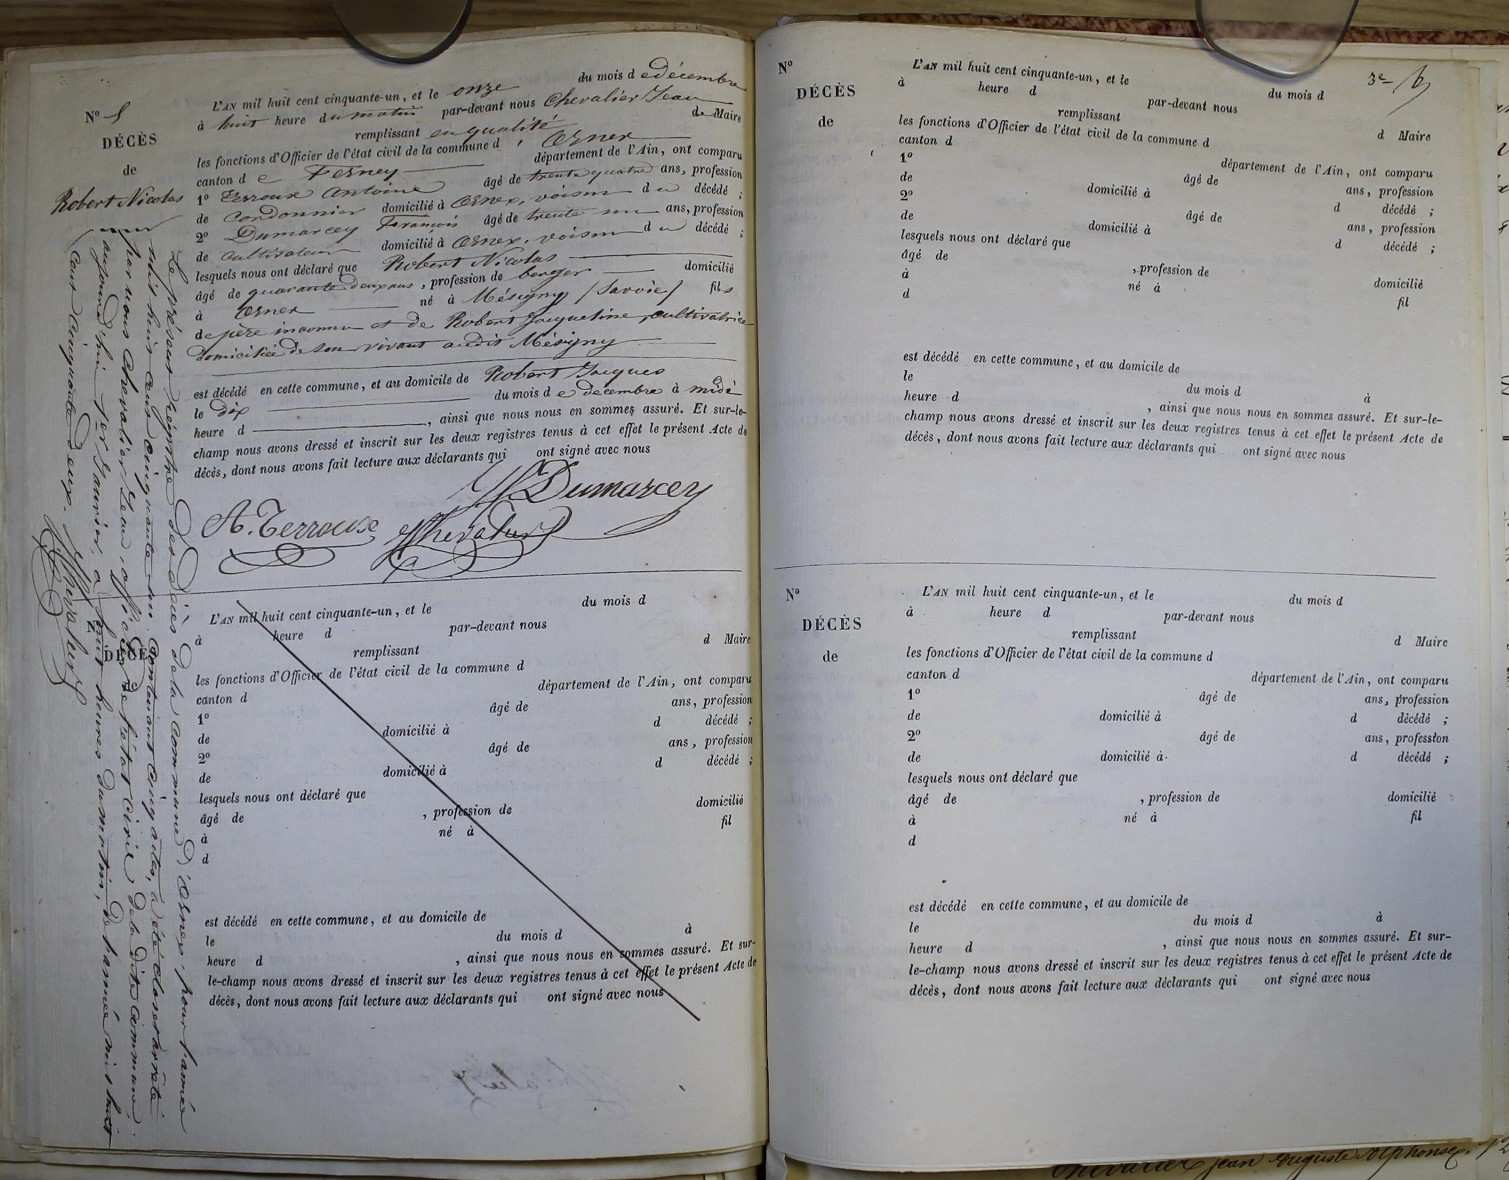 L'AN mil huit cent cinquante-un, et le onze du mois d e décembre
N° 5
à huit heure du matin par-devant nous Chevalier Jean
DÉCÈS
remplissant en qualité de Maire
de
les fonctions d'Officier de l'état civil de la commune d' Ornex
Robert Nicolas
canton d e Ferney département de l'Ain, ont comparu
1° Terroux Antoine âgé de trente quatre ans, profession
de Cordonnier domicilié à Ornex, voisin d u décédé ;
2° Dumarcey François âgé de trente un ans, profession
de cultivateur domicilié à Ornex, voisin d u décédé ;
lesquels nous ont déclaré que Robert Nicolas
âgé de quarante deux ans, profession de berger domicilié
à Ornex né à Mésigny (Savoie) fils
de père inconnu et de Robert Jacqueline, cultivatrice
domiciliée de son vivant audit Mésigny
est décédé en cette commune, et au domicile de Robert Jacques
le dix du mois d e décembre à midi
heure d , ainsi que nous nous en sommes assuré. Et sur-le-
champ nous avons dressé et inscrit sur les deux registres tenus à cet effet le présent Acte de
décès, dont nous avons fait lecture aux déclarants qui ont signé avec nous
Dumarcey
A. Terroux Chevalier
Le présent régistre des décès de la Commune d'Ornex pour l'année
mil huit cent cinquante un Contenant cinq actes, a été clos et arrêté
par nous Chevalier Jean officier de l'état civil de la dite commune
aujourd'hui 1er Janvier, à huit heures du matin, de l'année mil huit
cent cinquante deux. Chevalier
L'AN mil huit cent cinquante-un, et le du mois d
à heure d par-devant nous
DÉCÈS
remplissant d Maire
les fonctions d'Officier de l'état civil de la commune d
canton d département de l'Ain, ont comparu
1° âgé de ans, profession
de domicilié à d décédé ;
2° âgé de ans, profession
de domicilié à d décédé ;
lesquels nous ont déclaré que
âgé de , profession de domicilié
à né à fil
d
est décédé en cette commune, et au domicile de
le du mois d à
heure d , ainsi que nous nous en sommes assuré. Et sur-
le-champ nous avons dressé et inscrit sur les deux registres tenus à cet effet le présent Acte de
décès, dont nous avons fait lecture aux déclarants qui ont signé avec nous
N°
L'AN mil huit cent cinquante-un, et le du mois d
à heure d par-devant nous
DÉCÈS
remplissant d Maire
de
les fonctions d'Officier de l'état civil de la commune d
canton d département de l'Ain, ont comparu
1° âgé de ans, profession
de domicilié à d décédé ;
2° âgé de ans, profession
de domicilié à d décédé ;
lesquels nous ont déclaré que
âgé de , profession de domicilié
à né à fil
d
est décédé en cette commune, et au domicile de
le du mois d à
heure d , ainsi que nous nous en sommes assuré. Et sur-le-
champ nous avons dressé et inscrit sur les deux registres tenus à cet effet le présent Acte de
décès, dont nous avons fait lecture aux déclarants qui ont signé avec nous
N°
L'AN mil huit cent cinquante-un, et le du mois d
à heure d par-devant nous
DÉCÈS
remplissant d Maire
de
les fonctions d'Officier de l'état civil de la commune d
canton d département de l'Ain, ont comparu
1° âgé de ans, profession
de domicilié à d décédé ;
2° âgé de ans, profession
de domicilié à d décédé ;
lesquels nous ont déclaré que
âgé de , profession de domicilié
à né à fil
d
est décédé en cette commune, et au domicile de
le du mois d à
heure d , ainsi que nous nous en sommes assuré. Et sur-
le-champ nous avons dressé et inscrit sur les deux registres tenus à cet effet le présent Acte de
décès, dont nous avons fait lecture aux déclarants qui ont signé avec nous
Chevalier Jean Auguste Alphonse